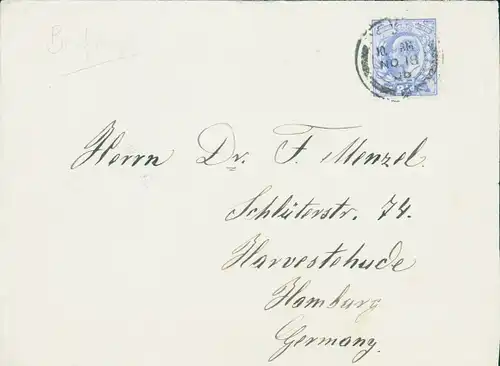 NO 19
06
Herrn Dr. F. Menzel.
Schlüterstr. 74.
Harvestehude
Hamburg
Germany.